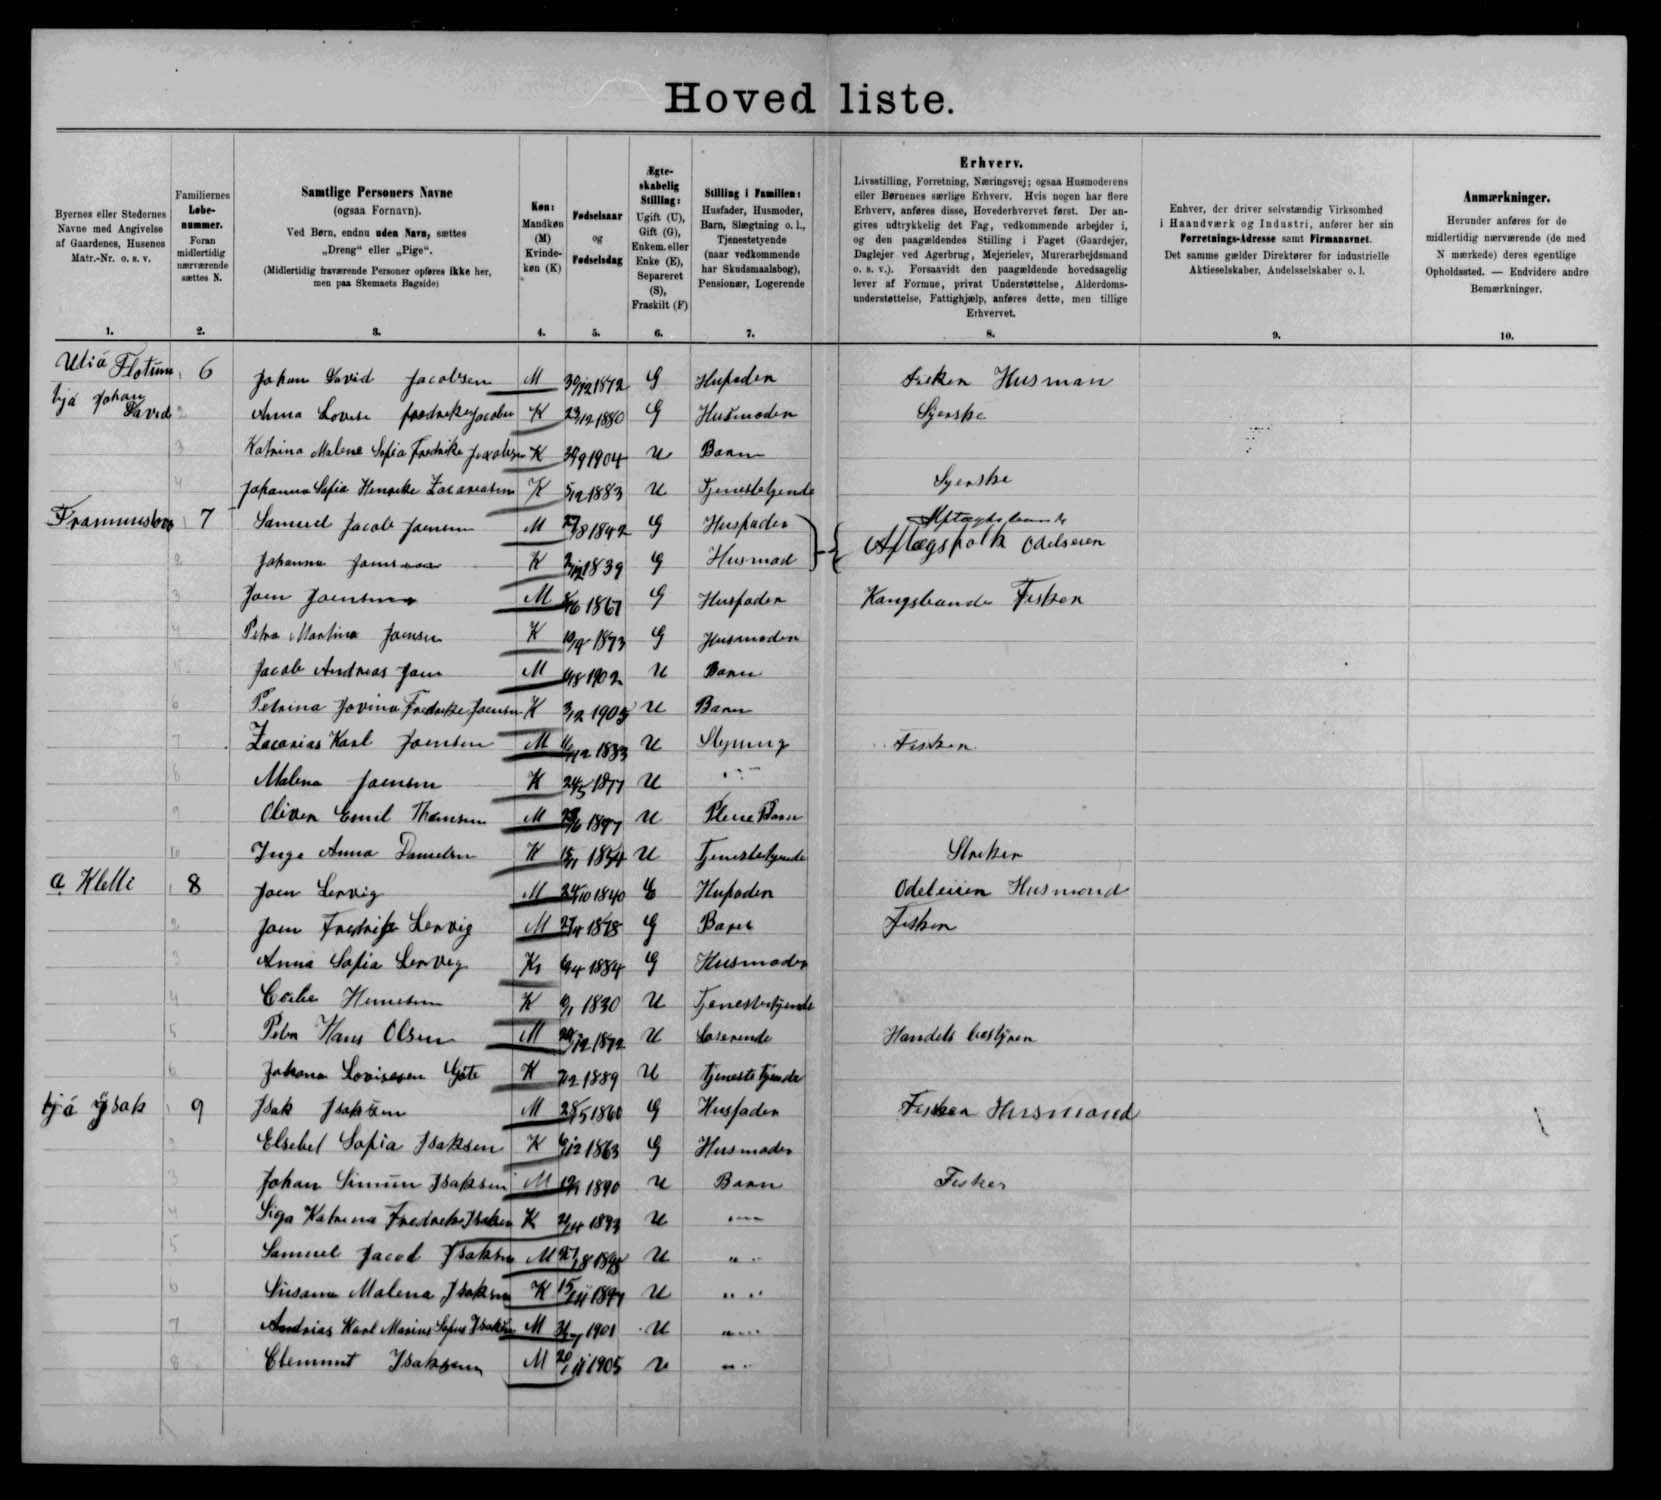 Hovedliste.
Byernes eller Stedernes Navne med Angivelse af Gaardenes, Husenes Matr.-Nr. o. s. v.
Familiernes Løbenummer. Foran midlertidig nærværende sættes N.
Samtlige Personers Navne (ogsaa Fornavn).
Ved Børn, endnu uden Navn, sættes „Dreng“ eller „Pige“.
(Midlertidig fraværende Personer opføres ikke her, men paa Skemaets Bagside)
Køn: Mandkøn (M) Kvindekøn (K)
Fødselsaar og Fødselsdag
Ægteskabelig Stilling: Ugift (U), Gift (G), Enkem. eller Enke (E), Separeret (S), Fraskilt (F)
Stilling i Familien: Husfader, Husmoder, Barn, Slægtning o. l., Tjenestetyende (naar vedkommende har Skudsmaalsbog), Pensionær, Logerende
Erhverv.
Livsstilling, Forretning, Næringsvej; ogsaa Husmoderens eller Børnenes særlige Erhverv. Hvis nogen har flere Erhverv, anføres disse, Hovederhvervet først. Der angives udtrykkelig det Fag, vedkommende arbejder i, og den paagældendes Stilling i Faget (Gaardejer, Daglejer ved Agerbrug, Mejerielev, Murerarbejdsmand o. s. v.). Forsaavidt den paagældende hovedsagelig lever af Formue, privat Understøttelse, Alderdomsunderstøttelse, Fattighjælp, anføres dette, men tillige Erhvervet.
Enhver, der driver selvstændig Virksomhed i Haandværk og Industri, anfører her sin Forretnings-Adresse samt Firmanavnet. Det samme gælder Direktører for industrielle Aktieselskaber, Andelsselskaber o. l.
Anmærkninger.
Herunder anføres for de midlertidig nærværende (de med N mærkede) deres egentlige Opholdssted. — Endvidere andre Bemærkninger.
1. 2. 3. 4. 5. 6. 7. 8. 9. 10.
6 Johan David Jacobsen M 1872 G Husfader Fisker Husman
hjá Johan David 2 Anna Lovise Jacobsen K 1880 G Husmoder Syerske
3 Katrina Malene Sofia Fredrike Jacobsen K 1904 U Barn
4 Johanna Sofia Henrike Zacariasen K 1883 U Tjenestetyende Syerske
7 Samuel Jacob Joensen M 1842 G Husfader
2 Johanna Joensen K 1839 G Husmod Aftægsfolk Odelseier
3 Joen Joensen M G Husfader Kongsbonde Fisker
4 Petra Martina Joensen K 1873 G Husmoder
5 Jacob Andreas Joen M 1902 U Barn
6 Petrina Jovina Fredrike Joensen K U Barn
7 Zacarias Karl Joensen M U Fisker
8 Malena Joensen K U
9 Oliver Emil Thomsen M 1897 U Pleie Barn
10 Inge Anna Danielsen K U Tjenestetyende
á Kletti 8 Joen Lervig M 1840 E Husfader Odelseier Husmand
2 Joen Fredrik Lervig M 1878 G Barn Fisker
3 Anna Sofia Lervig K 1884 G Husmoder
4 K 1830 U Tjenestetyende
5 Peter Hans Olsen M 1872 U Loserende Handels bestyrer
6 Johana K 1889 U Tjenestetyende
hjá Ísak 9 Isak Isaksen M 28/5 1860 G Husfader Fisker Husmand
2 Elsebet Sofia Isaksen K 1863 G Husmoder
3 Johan Simun Isaksen M 1890 U Barn Fisker
4 Siga Katrina Fredrike Isaksen K 1893 U " "
5 Samuel Jacob Isaksen M U " "
6 Susanna Malena Isaksen K U " "
7 Andrias Karl Marius Sofus Isaksen M 1901 U " "
8 Clement Isaksen M 1905 U " "